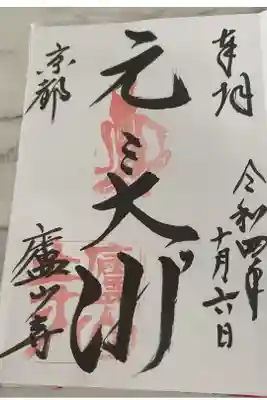 奉拝
令和四年十月六日
元三大師
京都
廬山寺